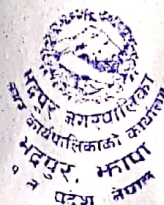 भद्रपुर नगरपालिका
नगर कार्यपालिकाको कार्यालय
भद्रपुर, झापा
१ नं प्रदेश नेपाल